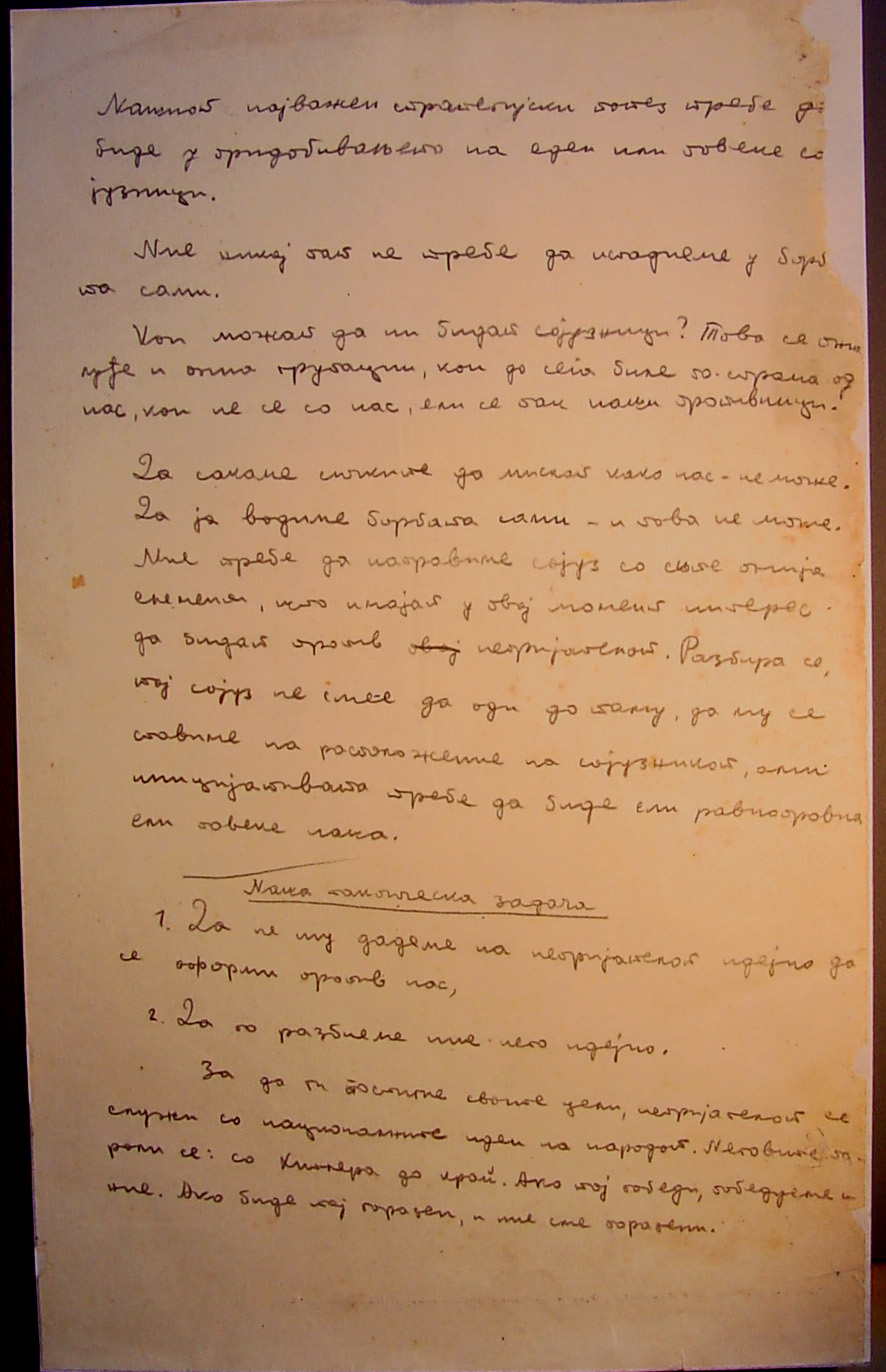 Нашиот најважен стратегијски потез требе д
биде у придобивањето на еден или повеќе со
јузници.
Ние никој пат не требе да испаднеме у борб
та сами.
Кои можат да ни бидат сојузници? Това се они
луѓе и онија групации, кои до сега биле по-страна од
нас, кои не се со нас, ели се пак наши противници.
Да сакаме сичките да мислат како нас - не може.
Да ја водиме борбата сами - и това не може.
Ние требе да направиме сојуз со сите онија
елементи, што имајат у овој момент интерес
да бидат против овој непријателот. Разбира се,
тој сојуз не смее да оди до таму, да му се
ставиме на расположение на сојузникот, али
иницијативата требе да биде ели равноправна
ели повеќе наша.
Наша тактическа задача
1. Да не му дадеме на непријателот идејно да
се оформи против нас,
2. Да го разбиеме ние него идејно.
За да ги постигне своите цели, непријателот се
служи со националните идеи на народот. Неговите па-
роли се: со Хитлера до край. Ако тој победи, победуеме и
ние. Ако биде тој поразен, и ние сме поразени.